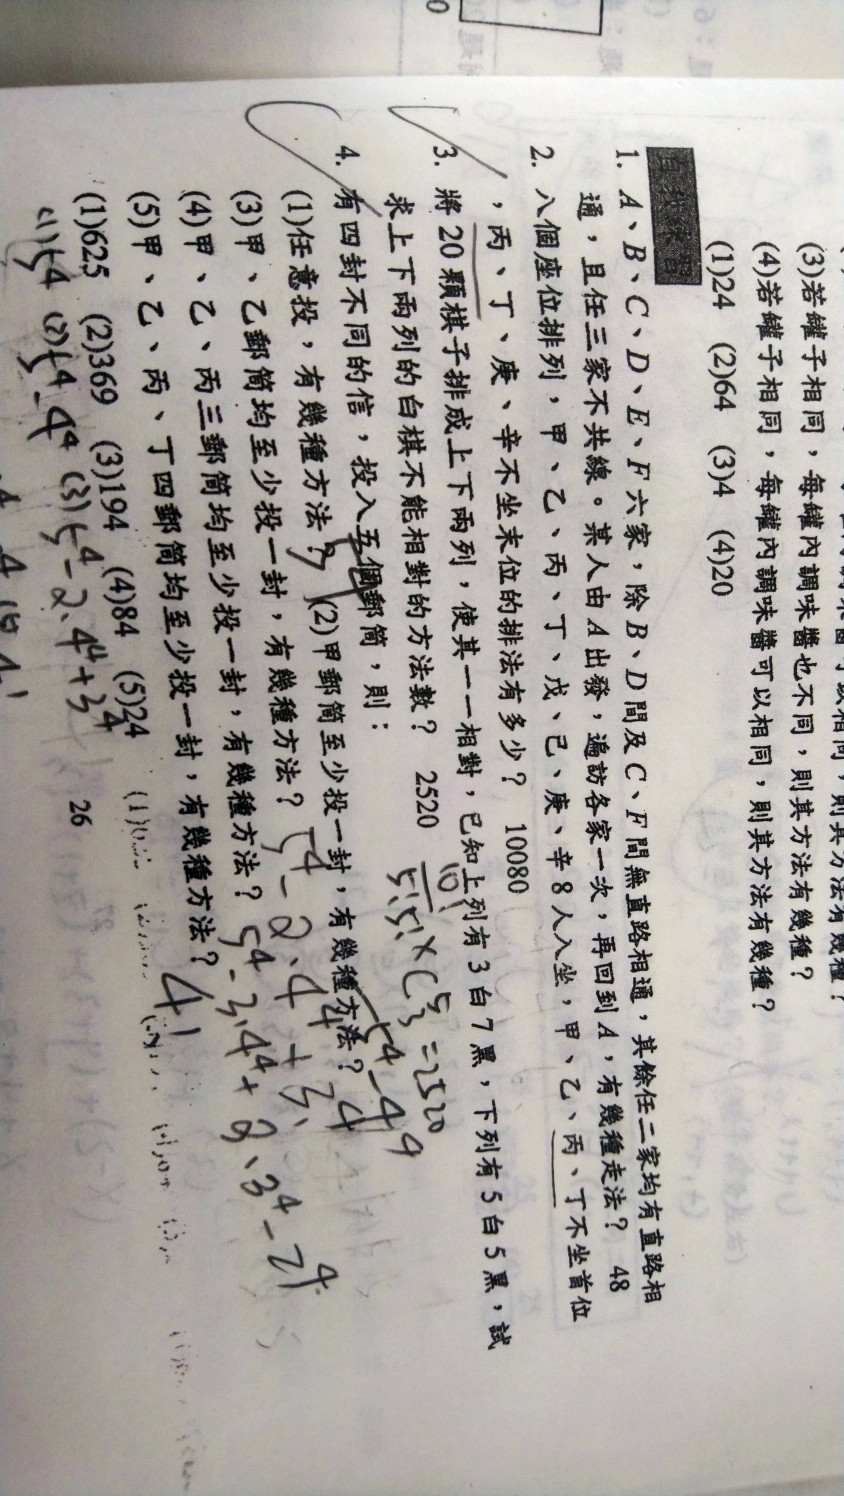 (3)若罐子相同，每罐內調味醬也不同，則其方法有幾種？
(4)若罐子相同，每罐內調味醬可以相同，則其方法有幾種？
(1)24 (2)64 (3)4 (4)20
自我練習
1. A、B、C、D、E、F 六家，除 B、D 間及 C、F 間無直路相通，其餘任二家均有直路相
通，且任三家不共線。某人由 A 出發，遍訪各家一次，再回到 A，有幾種走法？ 48
2. 八個座位排列，甲、乙、丙、丁、戊、己、庚、辛 8 人入坐，甲、乙、丙、丁不坐首位
，丙、丁、庚、辛不坐末位的排法有多少？ 10080
3. 將 20 顆棋子排成上下兩列，使其一一相對，已知上列有 3 白 7 黑，下列有 5 白 5 黑，試
求上下兩列的白棋不能相對的方法數？ 2520
10!/5!5! × C⁵₃ = 2520
4. 有四封不同的信，投入五個郵筒，則：
(1)任意投，有幾種方法？ (2)甲郵筒至少投一封，有幾種方法？
5⁴ 5⁴-4⁴
(3)甲、乙郵筒均至少投一封，有幾種方法？ 5⁴-2·4⁴+3⁴
(4)甲、乙、丙三郵筒均至少投一封，有幾種方法？ 5⁴-3·4⁴+3·3⁴-2⁴
(5)甲、乙、丙、丁四郵筒均至少投一封，有幾種方法？ 4!
(1)625 (2)369 (3)194 (4)84 (5)24
(1)5⁴ (2)5⁴-4⁴ (3)5⁴-2·4⁴+3⁴
26